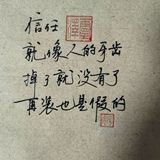 信任
就像人的牙齿
掉了就没有了
再装也是假的